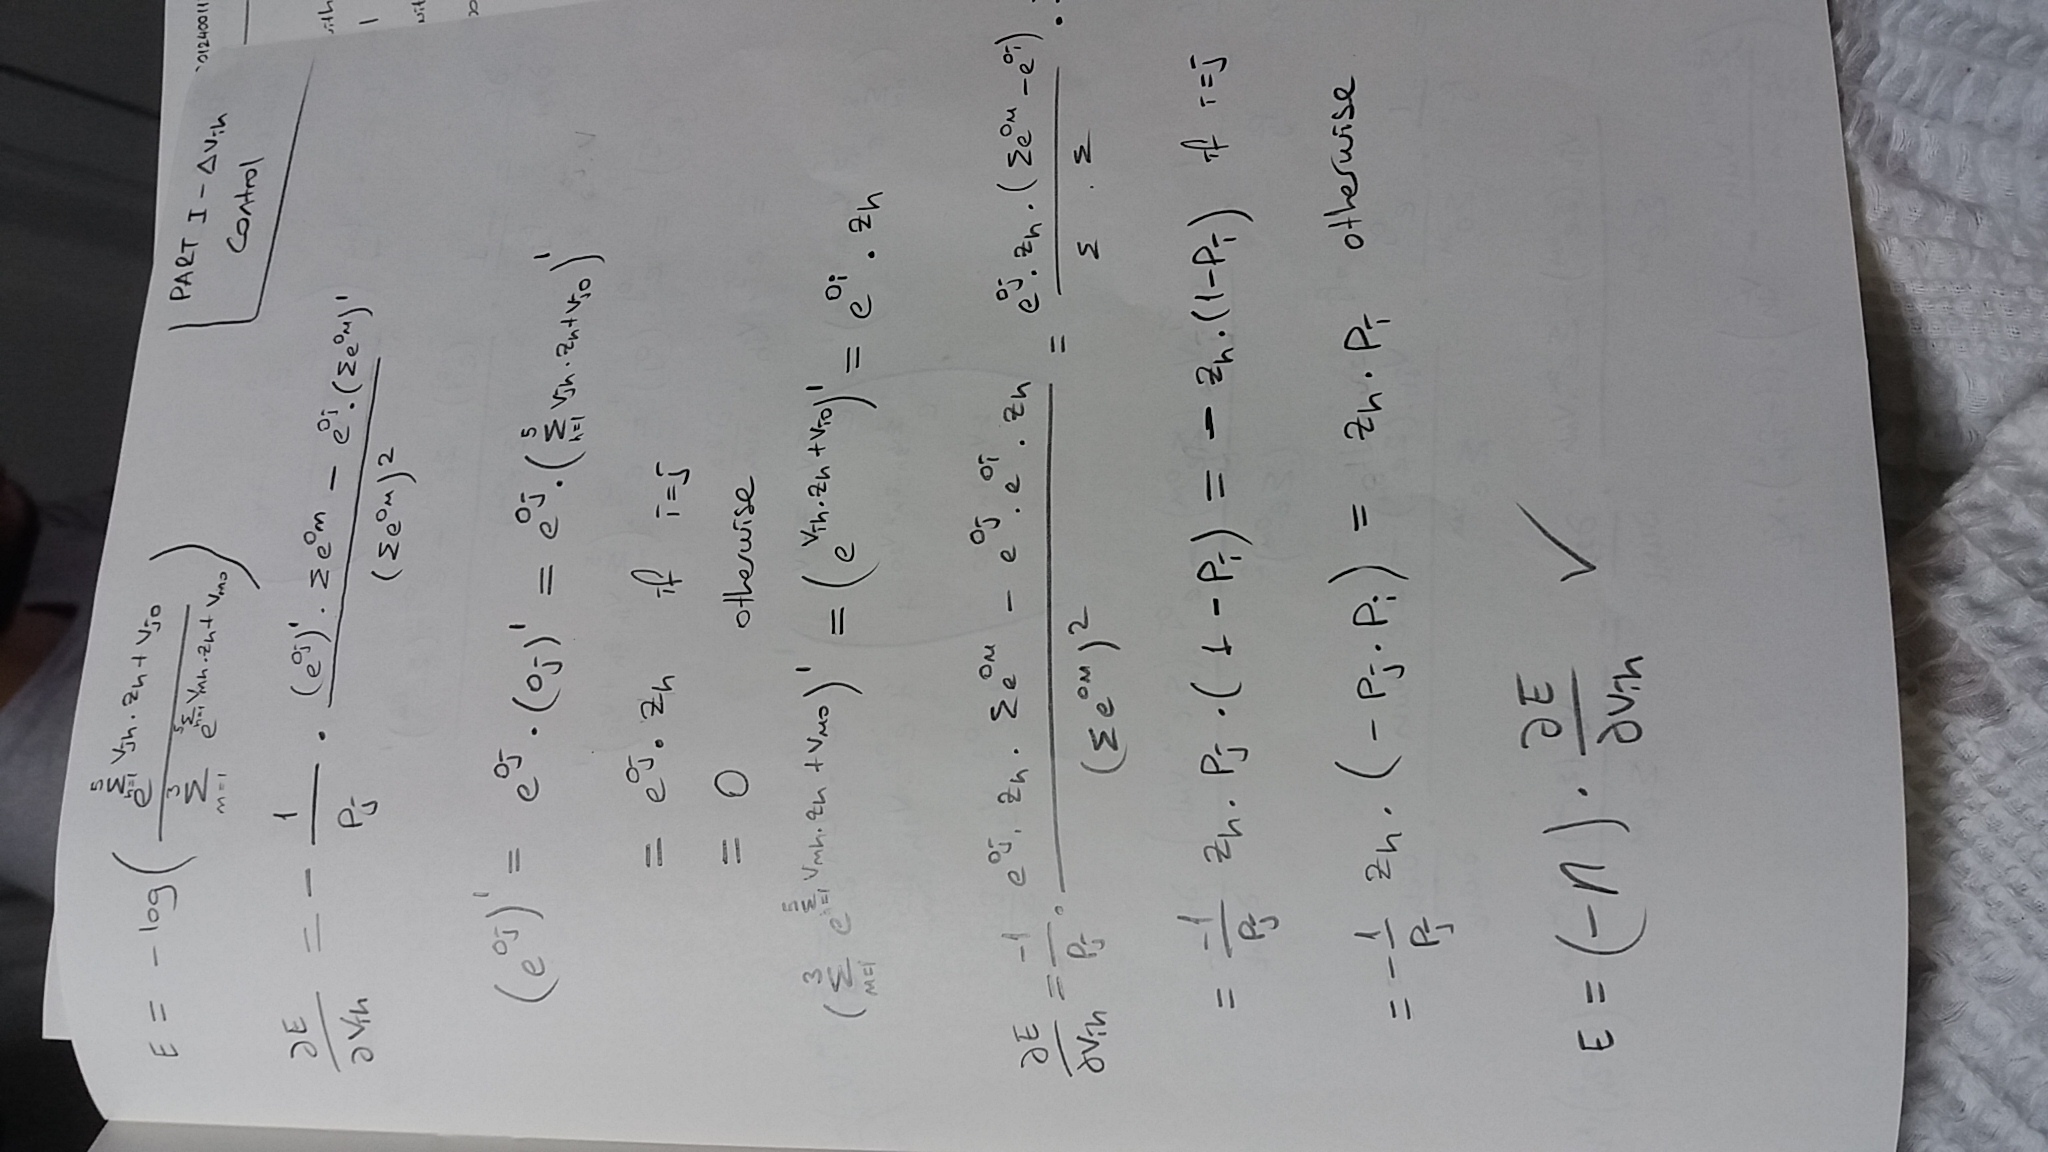 E = - log( e^{Σ_{h=1}^{5} v_{jh} . z_h + v_{j0}} / Σ_{m=1}^{3} e^{Σ_{h=1}^{5} v_{mh} . z_h + v_{m0}} )
PART I - Δv_{ih}
Control
∂E/∂v_{ih} = - 1/P_j . ((e^{o_j})' . Σe^{o_m} - e^{o_j} . (Σe^{o_m})') / (Σe^{o_m})^2
(e^{o_j})' = e^{o_j} . (o_j)' = e^{o_j} . (Σ_{h=1}^{5} v_{jh} . z_h + v_{j0})'
= e^{o_j} . z_h if i=j
= 0 otherwise
(Σ_{m=1}^{3} e^{Σ_{h=1}^{5} v_{mh} . z_h + v_{m0}})' = (e^{v_{ih} . z_h + v_{i0}})' = e^{o_i} . z_h
∂E/∂v_{ih} = -1/P_j . (e^{o_j} . z_h . Σe^{o_m} - e^{o_j} . e^{o_i} . z_h) / (Σe^{o_m})^2 = e^{o_j} . z_h . (Σe^{o_m} - e^{o_i}) / Σ . Σ
= -1/P_j z_h . P_j . (1 - P_i) = - z_h . (1-P_i) if i=j
= - 1/P_j z_h . (- P_j . P_i) = z_h . P_i otherwise
E = (-η) . ∂E/∂v_{ih} ✓